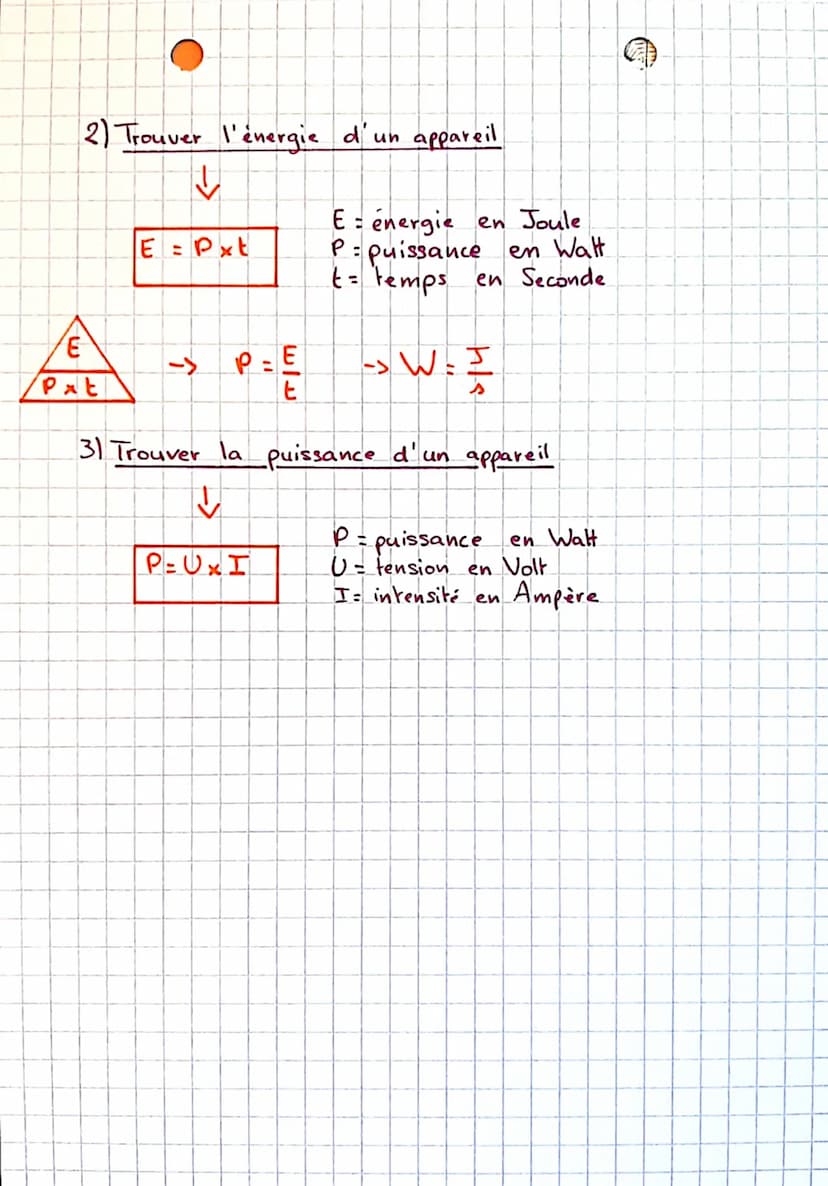 2) Trouver l'énergie d'un appareil
↓
E = P x t
E = énergie en Joule
P = puissance en Watt
t = temps en Seconde
E
P x t
-> P = E/t -> W = J/s
3) Trouver la puissance d'un appareil
↓
P = U x I
P = puissance en Watt
U = tension en Volt
I = intensité en Ampère